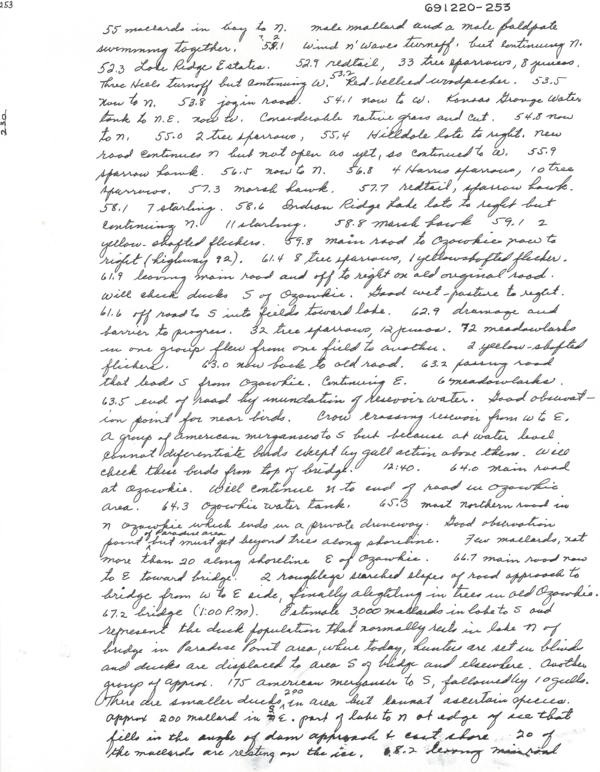 253
G91220-253
230
55 mallards in bay to N. male mallard and a male baldpate
swimming together. 52.1 Wind n' Waves turnoff, but continuing N.
52.3 Lake Ridge Estates. 52.9 redtail, 33 tree sparrows, 8 juncos.
Three Heels turnoff but continuing W. 53.2 Red-bellied woodpecker. 53.5
now to N. 53.8 jog in road. 54.1 now to W. Kansas Grange Water
tank to N.E. now W. Considerable native grass and cut. 54.8 now
to N. 55.0 2 tree sparrows, 55.4 Hilldale lots to right. New
road continues N but not open as yet, so continued to W. 55.9
sparrow hawk. 56.5 now to N. 56.8 4 Harris sparrows, 10 tree
sparrows. 57.3 marsh hawk. 57.7 redtail, sparrow hawk.
58.1 7 starling. 58.6 Indian Ridge Lake lots to right but
continuing N. 11 starling. 58.8 marsh hawk 59.1 2
yellow-shafted flickers. 59.8 main road to Ozawkie now to
right (highway 92). 61.4 8 tree sparrows, 1 yellowshafted flicker.
61.9 leaving main road and off to right on old original road.
Will check ducks S of Ozawkie. Good wet-pasture to right.
61.6 off road to S into fields toward lake. 62.9 drainage and
barrier to progress. 32 tree sparrows, 12 juncos. 72 meadowlarks
in one group flew from one field to another. 2 yellow-shafted
flickers. 63.0 now back to old road. 63.2 passing road
that leads S from Ozawkie. Continuing E. 6 meadowlarks.
63.5 end of road by inundation of reservoir water. Good observat-
ion point for near birds. Crow crossing reservoir from W to E.
A group of American mergansers to S but because at water level
cannot diferentiate birds except by gull action above them. Will
check these birds from top of bridge. 12:40. 64.0 main road
at Ozawkie. Will continue N to end of road in Ozawkie
area. 64.3 Ozawkie water tank. 65.3 most northern road in
N Ozawkie which ends in a private driveway. Good observation
point of Paradise area but must get beyond trees along shoreline. Few mallards, not
more than 20 along shoreline E of Ozawkie. 66.7 main road now
to E toward bridge. 2 roughlegs searched slopes of road approach to
bridge from W to E side, finally alighting in trees in old Ozawkie.
67.2 bridge (1:00 P.M). Estimate 3,000 mallards in lake to S and
represent the duck population that normally rests in lake N of
bridge in Paradise Point area, where today, hunters are set in blinds
and ducks are displaced to area S of bridge and elsewhere. Another
group of approx. 175 American merganser to S, followed by 10 gulls.
There are smaller ducks, 200 in area but cannot ascertain species.
Approx 200 mallard in E. part of lake to N at edge of ice that
fills in the angle of dam approach & east shore. 20 of
the mallards are resting on the ice. 68.2 leaving main road